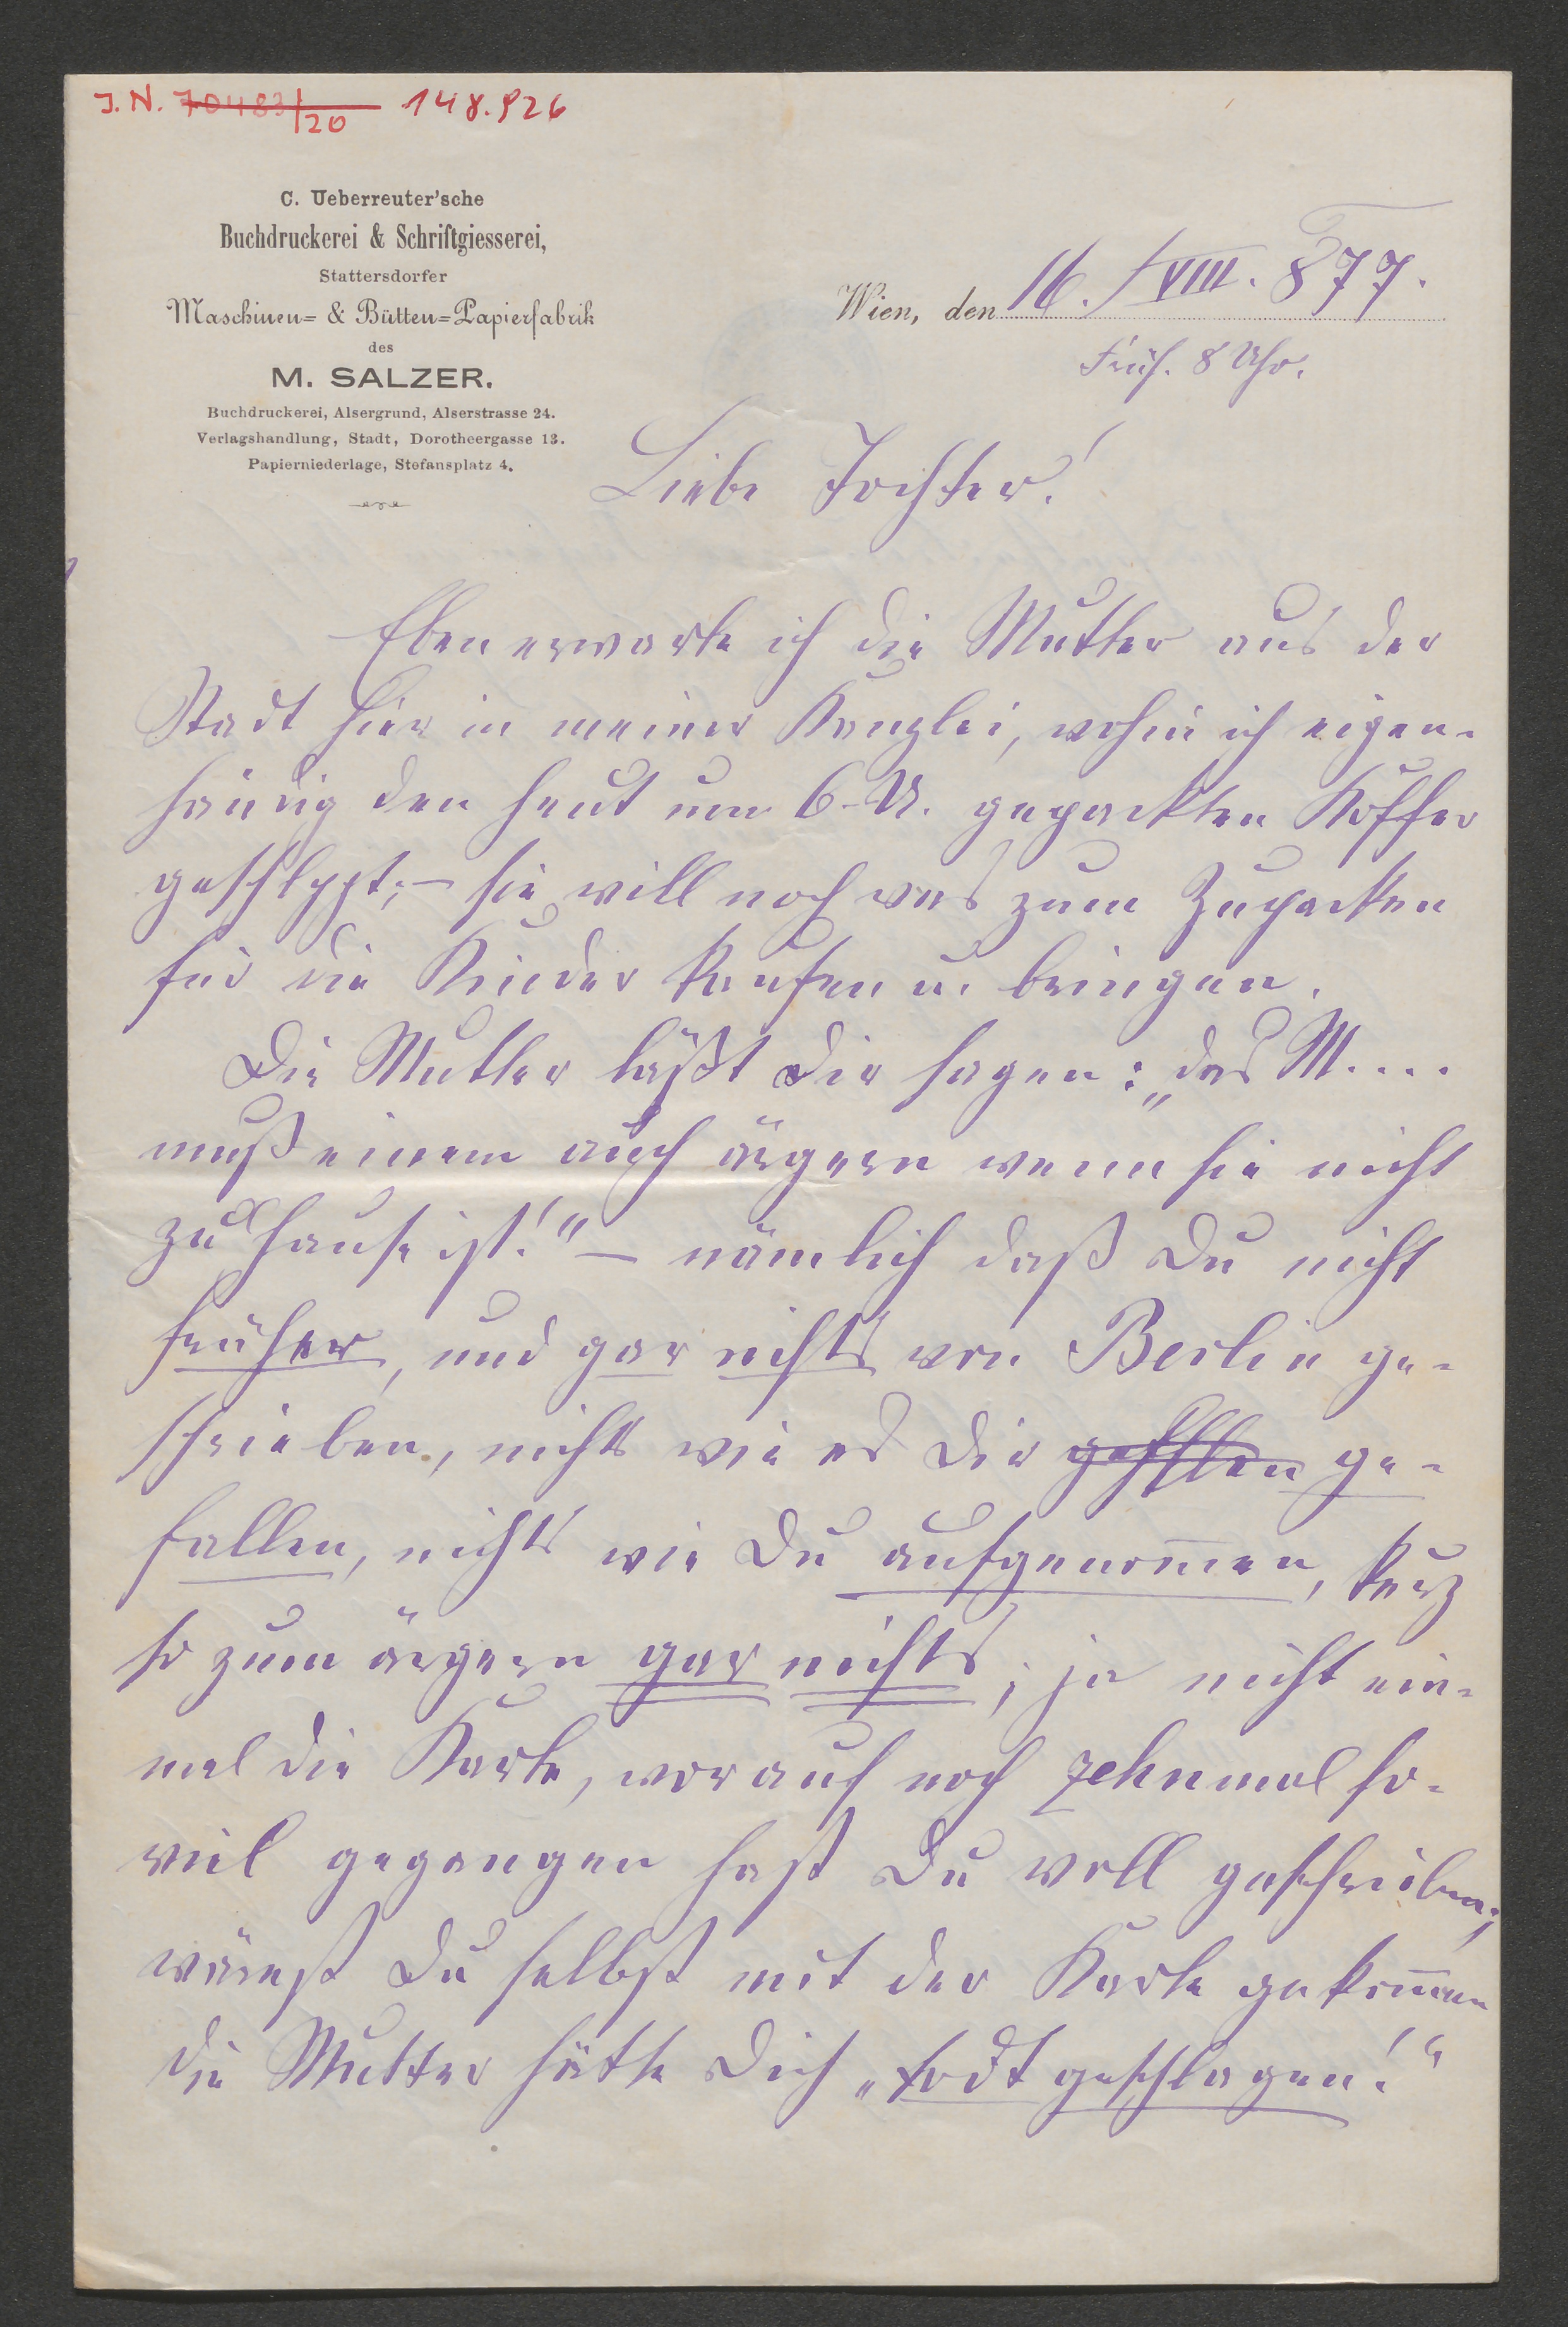 J. N. 70483/20 148.926
C. Ueberreuter'sche
Buchdruckerei & Schriftgiesserei,
Stattersdorfer
Maschinen= & Bütten=Papierfabrik
des
M. SALZER.
Buchdruckerei, Alsergrund, Alserstrasse 24.
Verlagshandlung, Stadt, Dorotheergasse 13.
Papierniederlage, Stefansplatz 4.
Wien, den 16./VIII. 877.
Früh. 8 Uhr.
Liebe Tochter!
Eben erwarte ich die Mutter aus der
Stadt hier in meiner Kanzlei, wohin ich eigen-
händig den heut um 6-U. gepackten Koffer
geschlppt; – sie will noch was zum Zupacken
für die Kinder kaufen u. bringen.
Die Mutter läßt Dir sagen: „das M....
muß einem auch ärgern wenn sie nicht
zu Hause ist!" – nämlich daß Du nicht
früher, und gar nichts von Berlin ge-
schrieben, nichts wie es Dir gefflen ge-
fallen, nichts wie Du aufgenom̅en, kurz
so zum ärgern gar nichts; ja nicht ein-
mal die Karte, worauf noch zehnmal so-
viel gegangen hast Du voll geschrieben;
wärest Du selbst mit der Karte gekom̅en
die Mutter hätte Dich „todt geschlagen!"